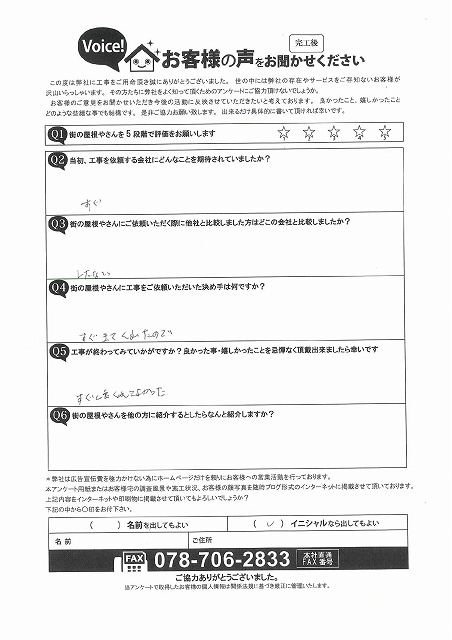 Voice!
完工後
お客様の声をお聞かせください
この度は弊社に工事をご用命頂き誠にありがとうございました。世の中には弊社の存在やサービスをご存知ないお客様が
沢山いらっしゃいます。その方たちに弊社をよく知って頂くためのアンケートにご協力頂けないでしょうか。
お客様のご意見をお聞かせいただき今後の活動に反映させていただきたいと考えております。良かったこと、嬉しかったこと
どのような些細な事でも結構です。是非ご協力お願い致します。出来るだけ具体的に書いて頂ければ幸いです。
Q1 街の屋根やさんを5段階で評価をお願いします
1 2 3 4 5
Q2 当初、工事を依頼する会社にどんなことを期待されていましたか?
すぐ
Q3 街の屋根やさんにご依頼いただく際に他社と比較しました方はどこの会社と比較しましたか?
したない
Q4 街の屋根やさんに工事をご依頼いただいた決め手は何ですか?
すぐ来てくれたので
Q5 工事が終わってみていかがですか?良かった事・嬉しかったことを忌憚なく頂戴出来ましたら幸いです
すぐしてくれてよかった
Q6 街の屋根やさんを他の方に紹介するとしたらなんと紹介しますか?
*弊社は広告宣伝費を極力かけない為にホームページだけを頼りにお客様への営業活動を行っております。
本アンケート用紙またはお客様宅の調査風景や施工状況、お客様の顔写真を随時ブログ形式のインターネットに掲載させて頂いております。
上記内容をインターネットや印刷物に掲載させて頂いてもよろしいでしょうか?
下記の中から〇印をお付下さい。
( )名前を出してもよい
(✓)イニシャルなら出してもよい
名前
ご住所
FAX 078-706-2833 本社直通 FAX番号
ご協力ありがとうございました。
当アンケートで取得したお客様の個人情報は関係法規に基づき厳正に管理いたします。